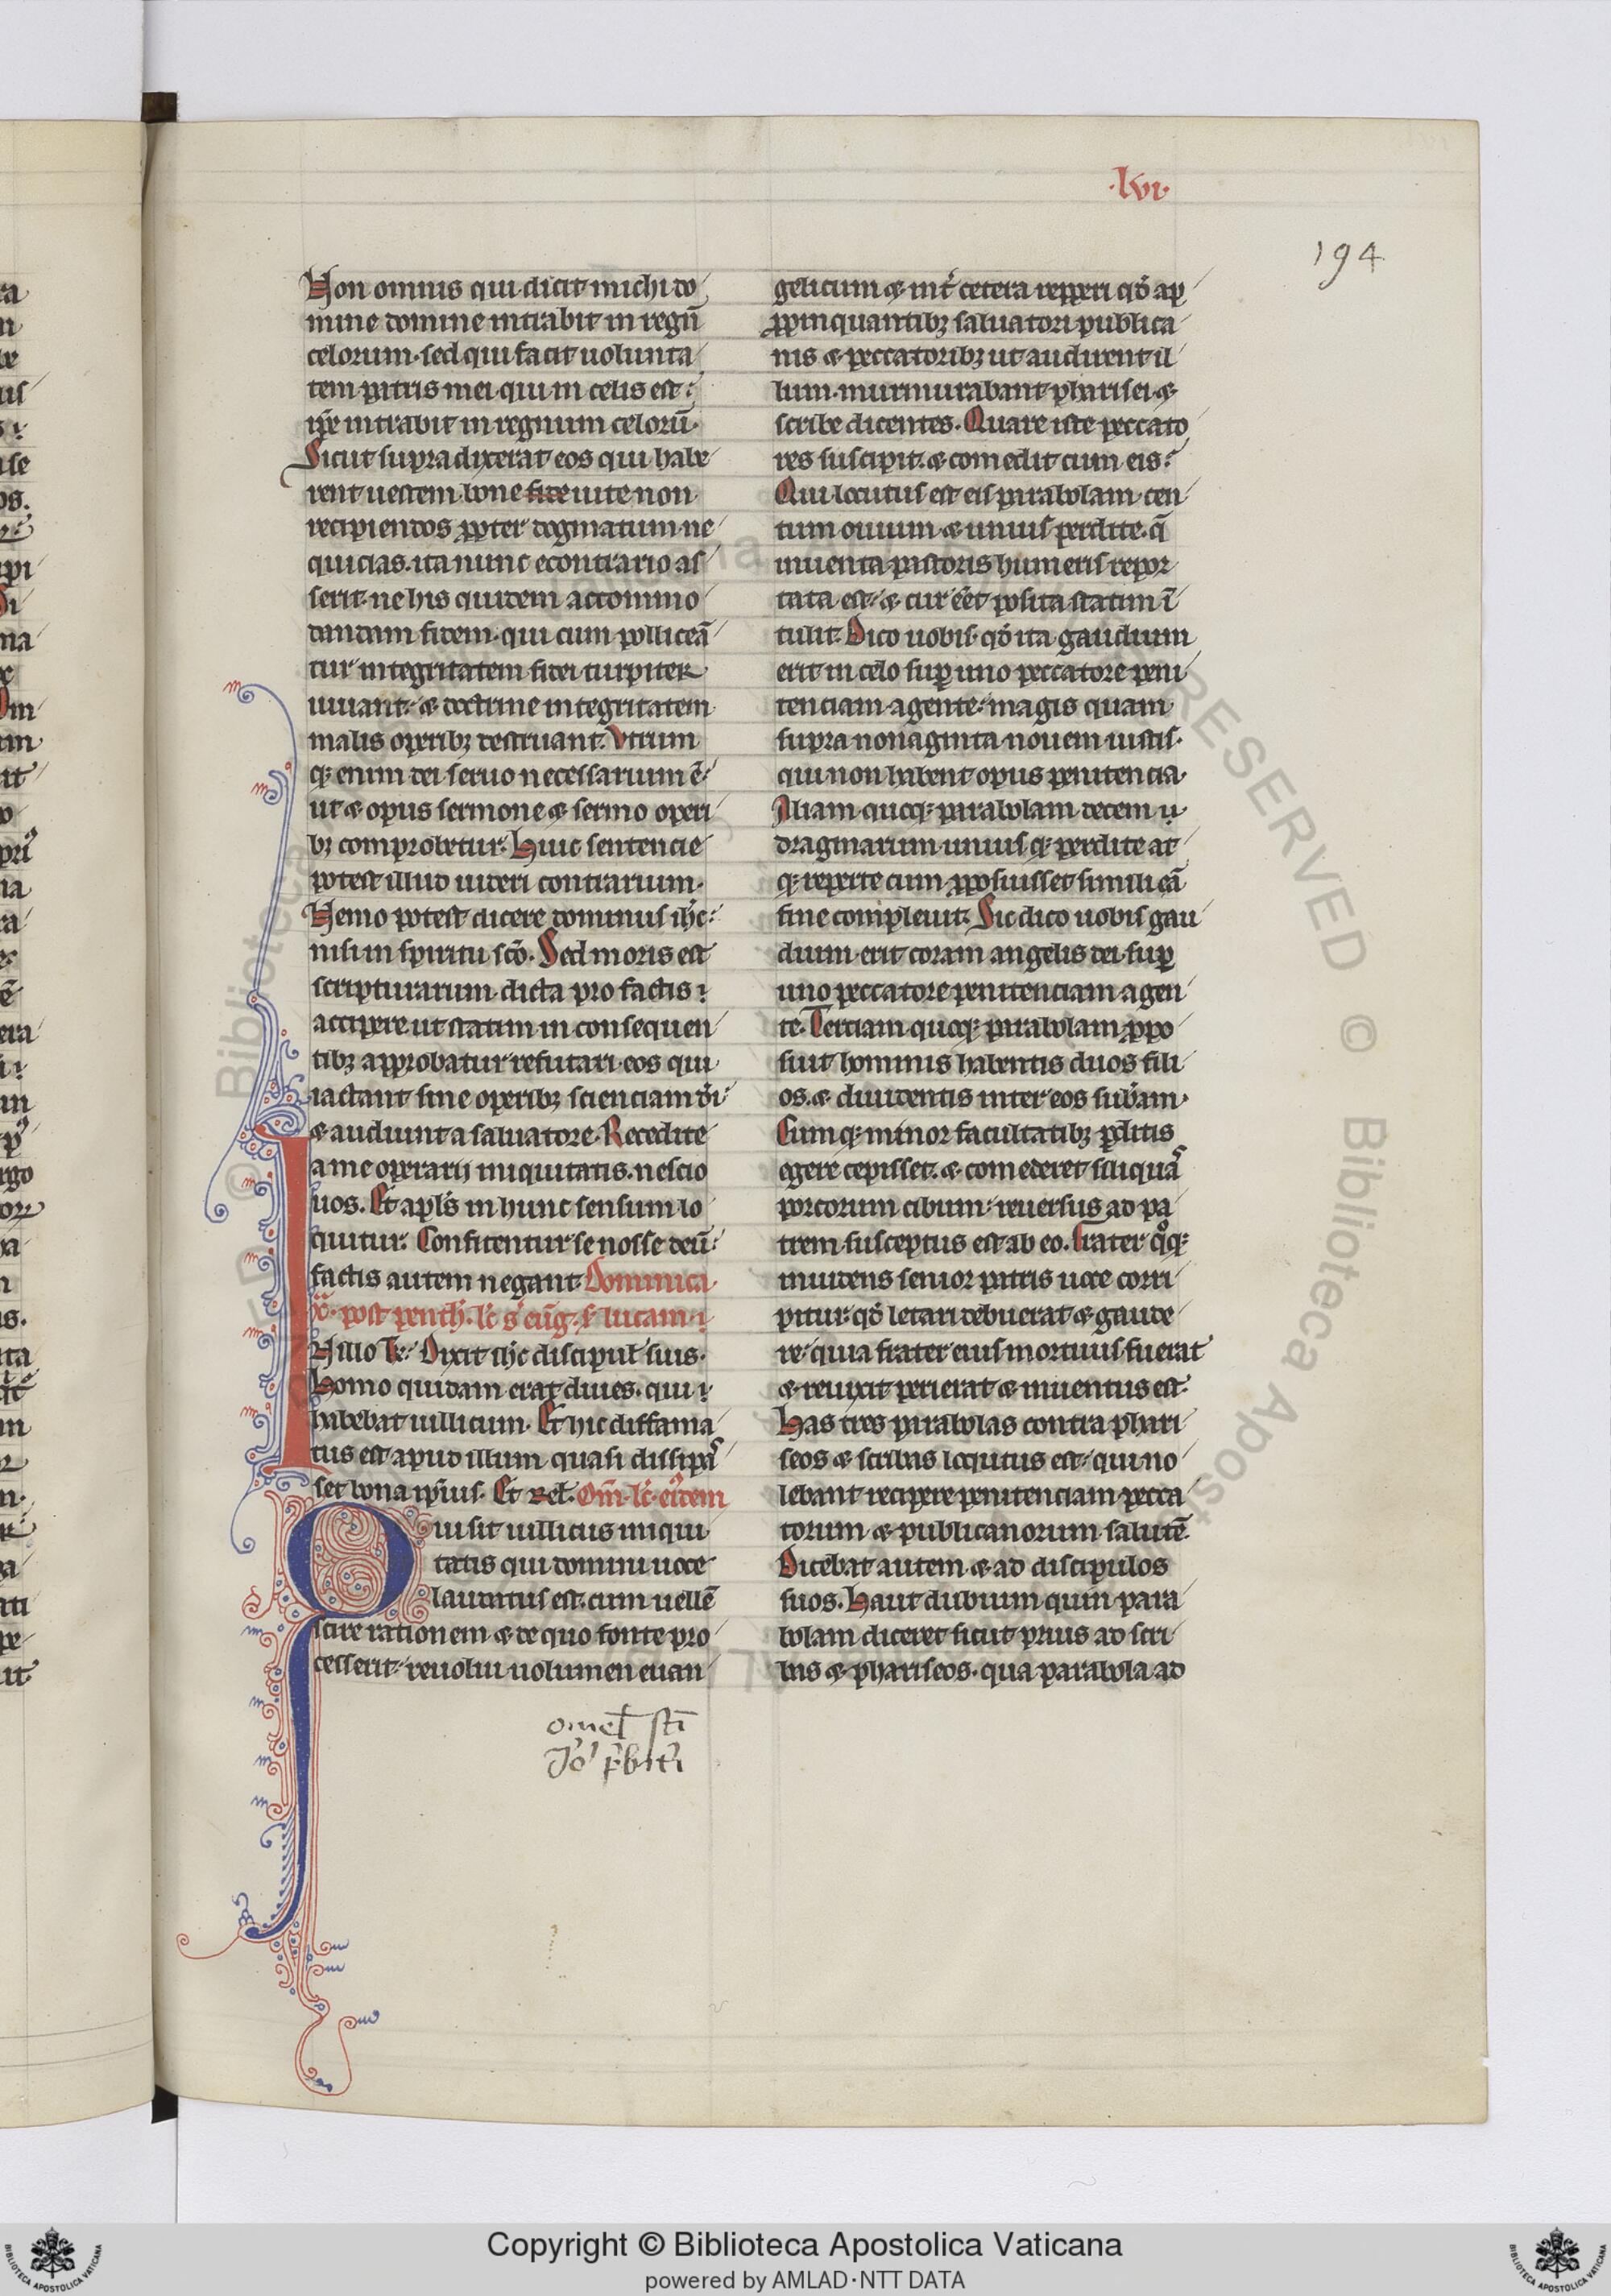 .lvi.
194
Non omnis qui dicit michi do
mine domine intrabit in regnū
celorum. sed qui facit uolunta
tem patris mei qui in celis est:
ip̄e intrabit in regnum celorū.
Sicut supra dixerat eos qui habe
rent uestem bone fidei uite non
recipiendos ꝓpter dogmatum ne
quicias. ita nunc econtrario as
serit. ne his quidem accommo
dandam fidem. qui cum polliceā
tur integritatem fidei turpiter
uiuant: ⁊ doctrine integritatem
malis operibꝫ destruant. Vtrum
qꝫ enim dei seruo necessarium ē:
ut ⁊ opus sermone ⁊ sermo operi
bꝫ comprobetur. Huic sentencie
potest illud uideri contrarium.
Nemo potest dicere dominus ihc̄:
nisi in spiritu sc̄o. Sed moris est
scripturarum dicta pro factis
accipere ut statim in consequen
tibꝫ approbatur refutari eos qui
iactant sine operibꝫ scienciam dn̄i
⁊ audiunt a saluatore. Recedite
a me operarii iniquitatis. nescio
uos. Et apl̄s in hunc sensum lo
quitur. Confitentur se nosse deū:
factis autem negant. Dominica
x. post penth̄. lc̄ s̄ eūg. s̄ lucam.
N illo t̄: Dixit ihc̄ discipul̄ suis.
Homo quidam erat diues. qui
habebat uillicum. Et hic diffama
tus est apud illum quasi dissipas
set bona ip̄ius. Et rel̄. Om̄. lc̄. eiꝰdem
Qui sit uillicus iniqui
tatis qui domini uoce
laudatus est. cum uellē
scire rationem ⁊ de quo fonte pro
cesserit. reuolui uolumen euan
omel̄ sc̄i
Jo' p̄bit̄i
gelicum ⁊ int̄ cetera repperi qd̄ ap
ꝓpinquantibꝫ saluatori publica
nis ⁊ peccatoribꝫ ut audirent il
lum. murmurabant pharisei ⁊
scribe dicentes. Quare iste peccato
res suscipit. ⁊ comedit cum eis:
Qui locutus est eis parabolam cen
tum ouium ⁊ unius perdite. q̄
inuenta pastoris humeris repor
tata est. ⁊ cur eēt posita statim ī
tulit. Dico uobis. qd̄ ita gaudium
erit in celo suꝑ uno peccatore peni
tenciam agente: magis quam
supra nonaginta nouem iustis.
qui non habent opus penitencia.
Aliam quoqꝫ parabolam decem
dragmarum unius qꝫ perdite at
qꝫ reperte cum ꝓposuisset simili eā
fine compleuit. Sic dico uobis gau
dium erit coram angelis dei suꝑ
uno peccatore penitenciam agen
te. Terciam quoqꝫ parabolam ꝓpo
suit hominis habentis duos fili
os. ⁊ diuidentis inter eos sub̄am.
Cumqꝫ minor facultatibꝫ ꝑditis
egere cepisset. ⁊ comederet siliquas
porcorum cibum: reuersus ad pa
trem susceptus est ab eo. Frater qͦqꝫ
inuidens senior patris uoce corri
pitur. qd̄ letari debuerat ⁊ gaude
re. quia frater eius mortuus fuerat
⁊ reuixit perierat ⁊ inuentus est.
Has tres parabolas contra phari
seos ⁊ scribas loqutus est. qui no
lebant recipere penitenciam pecca
torum ⁊ publicanorum salutē.
Dicebat autem ⁊ ad discipulos
suos. Haut dubium quin para
bolam diceret sicut prius ad scri
bas ⁊ phariseos. qua parabola ad
Copyright © Biblioteca Apostolica Vaticana
powered by AMLAD·NTT DATA